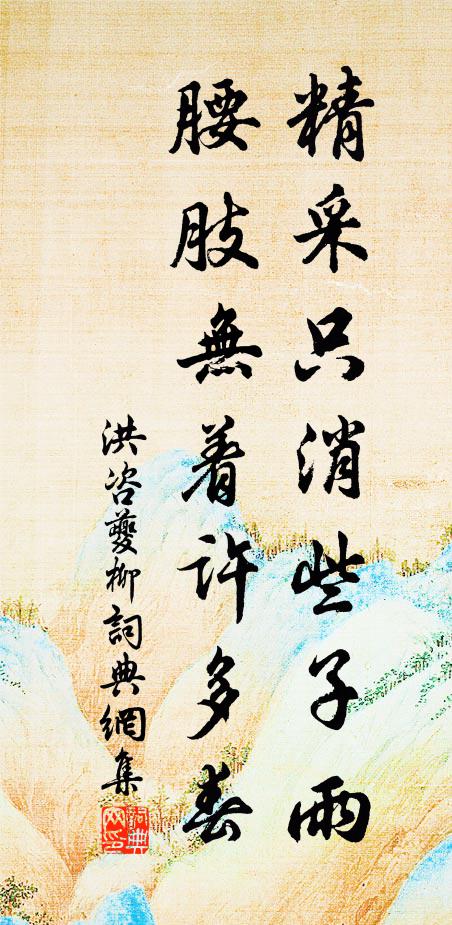 精采只消些子雨
腰肢無着許多春
洪咨夔柳詞典網集
詞典網印